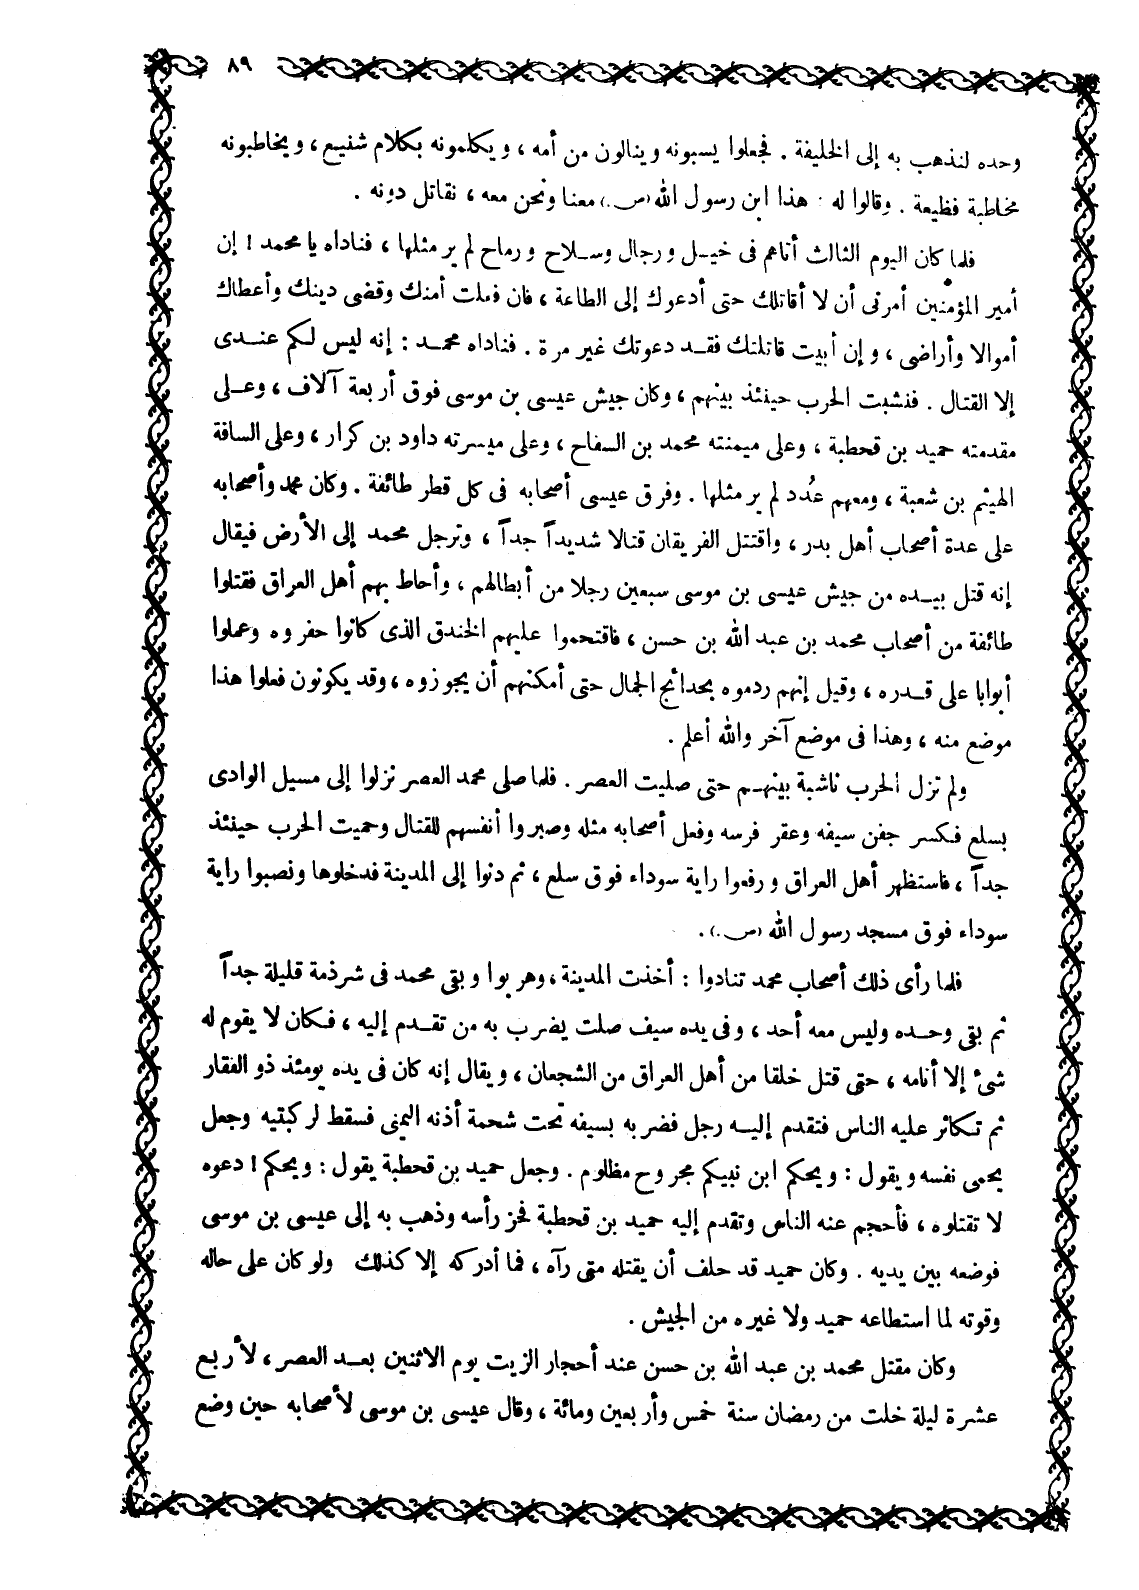 ٨٩
وحده لنذهب به إلى الخليفة . فجعلوا يسبونه وينالون من أمه ، ويكلمونه بكلام شنيع ، ويخاطبونه
مخاطبة فظيعة . وقالوا له : هذا ابن رسول الله (ص.) معنا ونحن معه ، نقاتل دونه .
فلما كان اليوم الثالث أتاهم فى خيل ورجال وسلاح ورماح لم ير مثلها ، فناداه يا محمد ! إن
أمير المؤمنين أمرنى أن لا أقاتلك حتى أدعوك إلى الطاعة ، فان فعلت أمنك وقضى دينك وأعطاك
أموالا وأراضى ، وإن أبيت قاتلتك فقد دعوتك غير مرة . فناداه محمد : إنه ليس لكم عندى
إلا القتال . فنشبت الحرب حينئذ بينهم ، وكان جيش عيسى بن موسى فوق أربعة آلاف ، وعلى
مقدمته حميد بن قحطبة ، وعلى ميمنته محمد بن السفاح ، وعلى ميسرته داود بن كرار ، وعلى الساقة
الهيثم بن شعبة ، ومعهم عُدد لم ير مثلها . وفرق عيسى أصحابه فى كل قطر طائفة . وكان محمد وأصحابه
على عدة أصحاب أهل بدر ، واقتتل الفريقان قتالا شديداً جداً ، وترجل محمد إلى الأرض فيقال
إنه قتل بيده من جيش عيسى بن موسى سبعين رجلا من أبطالهم ، وأحاط بهم أهل العراق فقتلوا
طائفة من أصحاب محمد بن عبد الله بن حسن ، فاقتحموا عليهم الخندق الذى كانوا حفروه وعملوا
أبوابا على قدره ، وقيل إنهم ردموه بحدائج الجمال حتى أمكنهم أن يجوزوه ، وقد يكونون فعلوا هذا
موضع منه ، وهذا فى موضع آخر والله أعلم .
ولم تزل الحرب ناشبة بينهم حتى صليت العصر . فلما صلى محمد العصر نزلوا إلى مسيل الوادى
بسلع فكسر جفن سيفه وعقر فرسه وفعل أصحابه مثله وصبروا أنفسهم للقتال وحميت الحرب حينئذ
جداً ، فاستظهر أهل العراق ورفعوا راية سوداء فوق سلع ، ثم دنوا إلى المدينة فدخلوها ونصبوا راية
سوداء فوق مسجد رسول الله (ص.) .
فلما رأى ذلك أصحاب محمد تنادوا : أخذت المدينة ، وهربوا وبقى محمد فى شرذمة قليلة جداً
ثم بقى وحده وليس معه أحد ، وفى يده سيف صلت يضرب به من تقدم إليه ، فكان لا يقوم له
شىء إلا أنامه ، حتى قتل خلقا من أهل العراق من الشجعان ، ويقال إنه كان فى يده يومئذ ذو الفقار
ثم تكاثر عليه الناس فتقدم إليه رجل فضربه بسيفه تحت شحمة أذنه اليمنى فسقط لركبتيه وجعل
يحمى نفسه ويقول : ويحكم ابن نبيكم مجروح مظلوم . وجعل حميد بن قحطبة يقول : ويحكم ! دعوه
لا تقتلوه ، فأحجم عنه الناس وتقدم إليه حميد بن قحطبة فحز رأسه وذهب به إلى عيسى بن موسى
فوضعه بين يديه . وكان حميد قد حلف أن يقتله متى رآه ، فما أدركه إلا كذلك ولو كان على حاله
وقوته لما استطاعه حميد ولا غيره من الجيش .
وكان مقتل محمد بن عبد الله بن حسن عند أحجار الزيت يوم الاثنين بعد العصر ، لأربع
عشرة ليلة خلت من رمضان سنة خمس وأربعين ومائة ، وقال عيسى بن موسى لأصحابه حين وضع